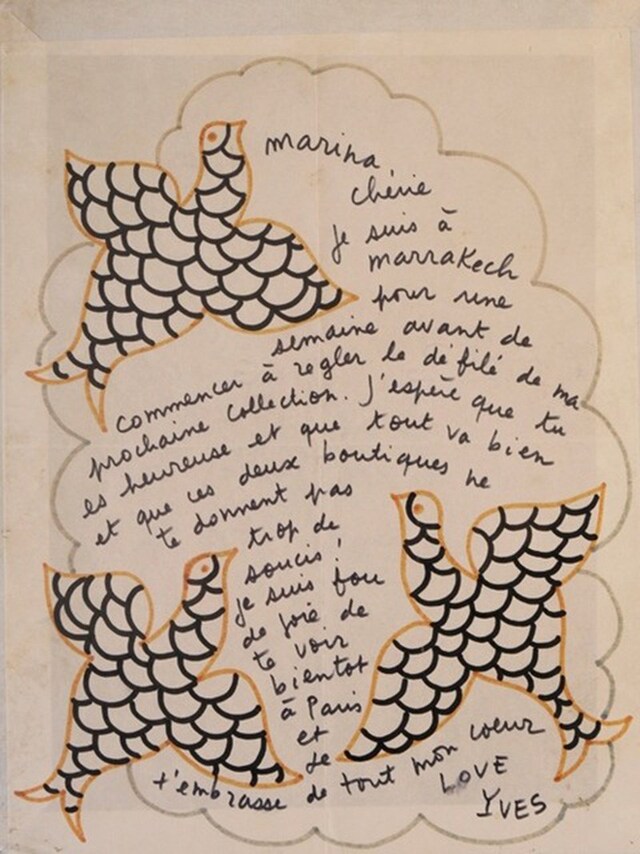 marina
chérie
je suis à
marrakech
pour une
semaine avant de
commencer à regler le défilé de ma
prochaine collection. J'espère que tu
es heureuse et que tout va bien
et que ces deux boutiques ne
te donnent pas
trop de
soucis!
je suis fou
de joie de
te voir
bientot
à Paris
et
je
t'embrasse de tout mon coeur
LOVE
YVES